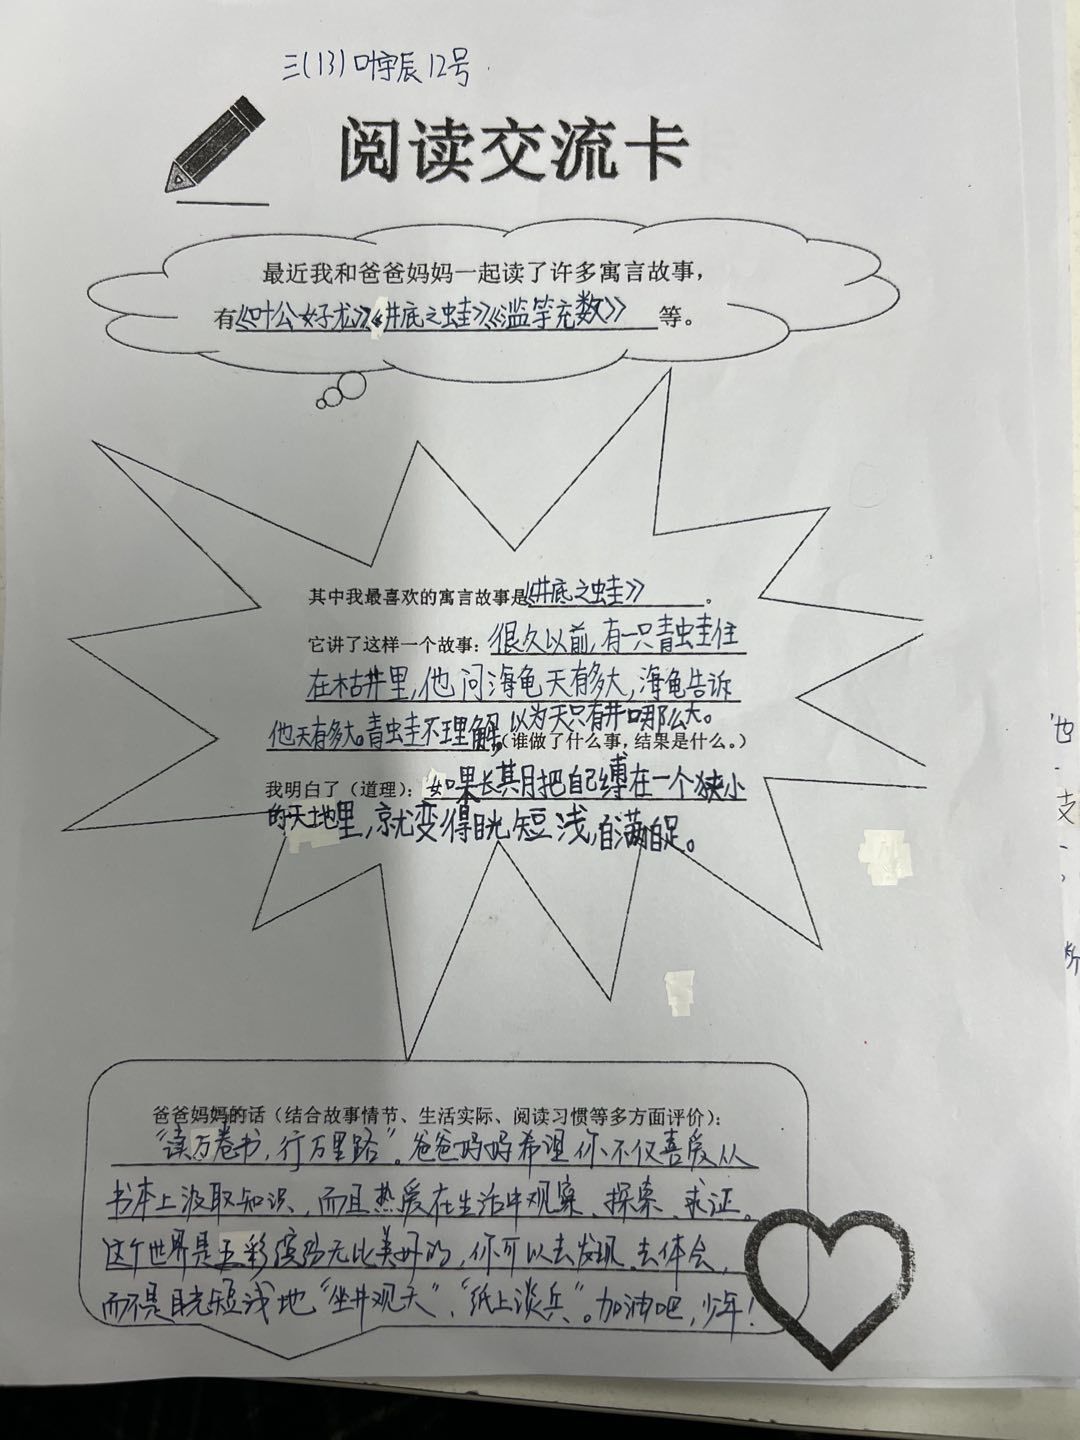 三(13)叶宇辰12号
阅读交流卡
最近我和爸爸妈妈一起读了许多寓言故事，
有《叶公好龙》《井底之蛙》《滥竽充数》等。
其中我最喜欢的寓言故事是《井底之蛙》。
它讲了这样一个故事：很久以前，有一只青蛙住
在枯井里，他问海龟天有多大，海龟告诉
他天有多大。青蛙不理解，以为天只有井口那么大。
（谁做了什么事，结果是什么。）
我明白了（道理）：如果长其月把自己缚在一个狭小
的天地里，就变得目光短浅，自满自足。
爸爸妈妈的话（结合故事情节、生活实际、阅读习惯等多方面评价）：
“读万卷书，行万里路”。爸爸妈妈希望你不仅喜爱从
书本上汲取知识，而且热爱在生活中观察、探索、求证。
这个世界是五彩缤纷无比美好的，你可以去发现、去体会，
而不是目光短浅地“坐井观天”、“纸上谈兵”。加油吧，少年！
也
支